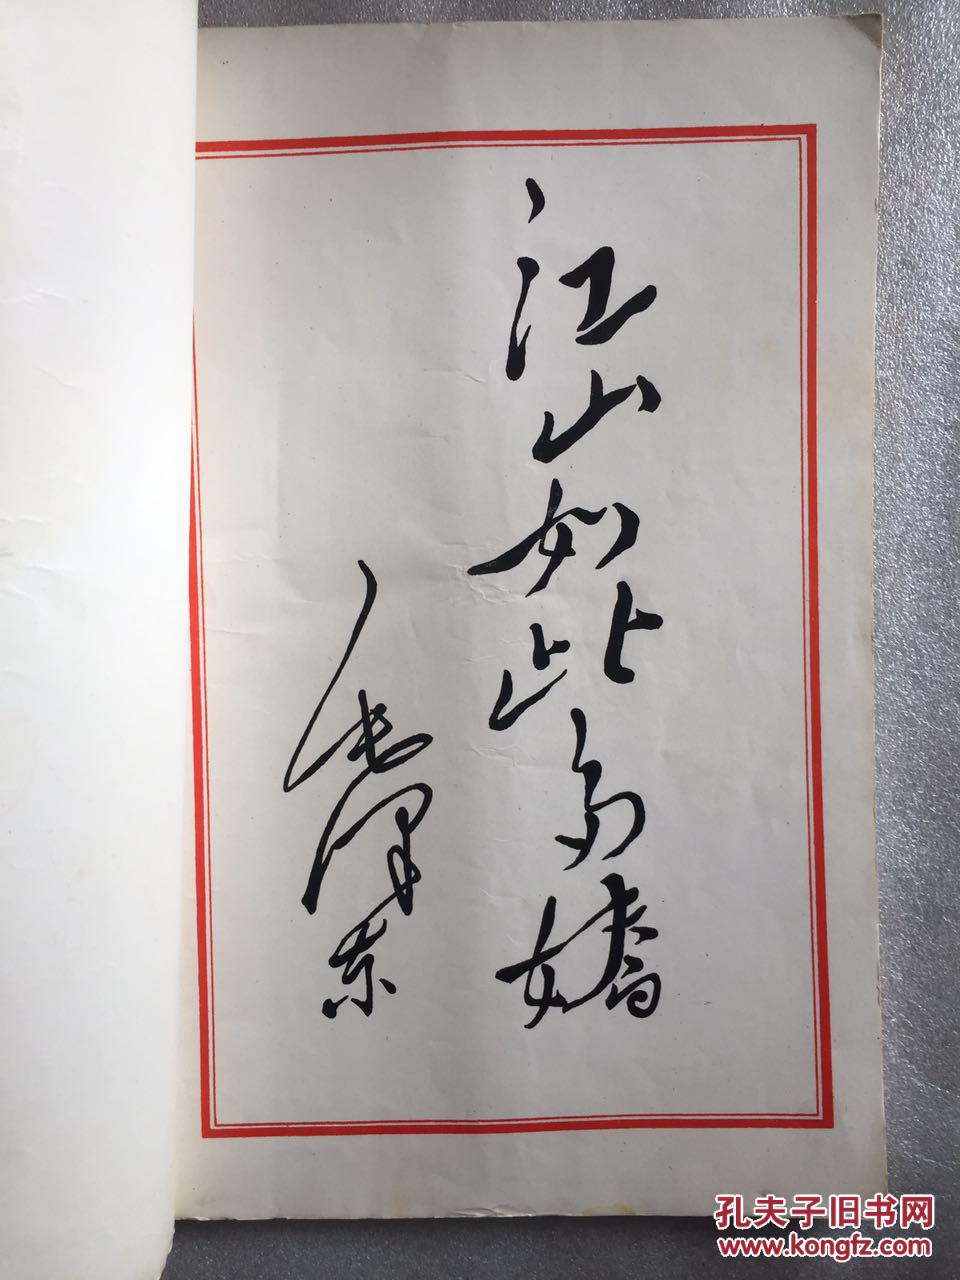 江山如此多娇
毛泽东
孔夫子旧书网
www.kongfz.com